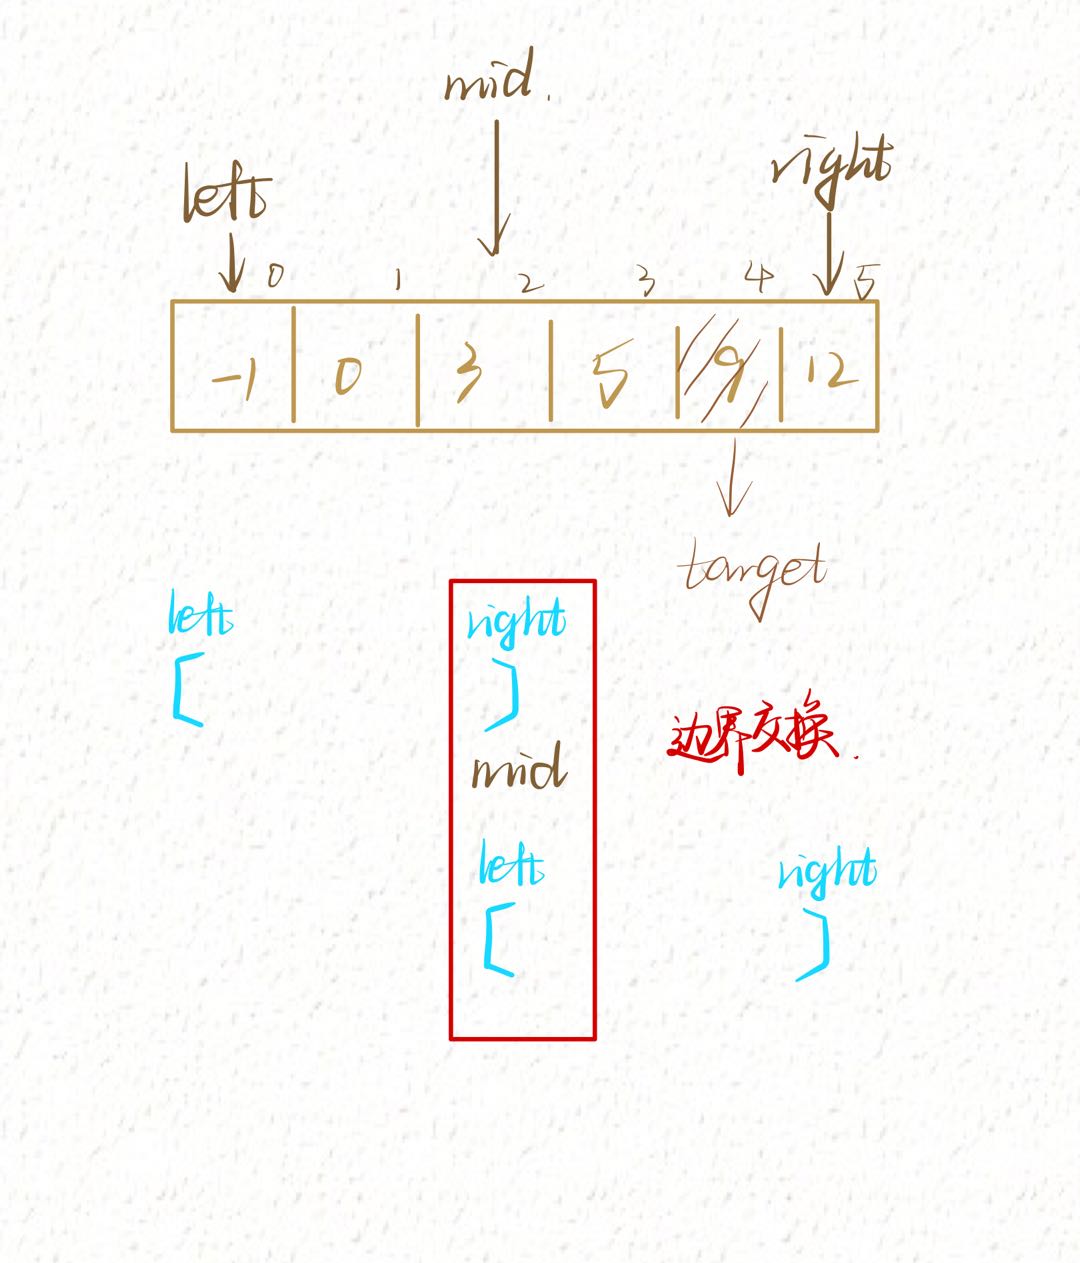 mid.
left
right
0 1 2 3 4 5
-1 0 3 5 9 12
target
left right
[ ]
边界交换.
mid
left right
[ ]